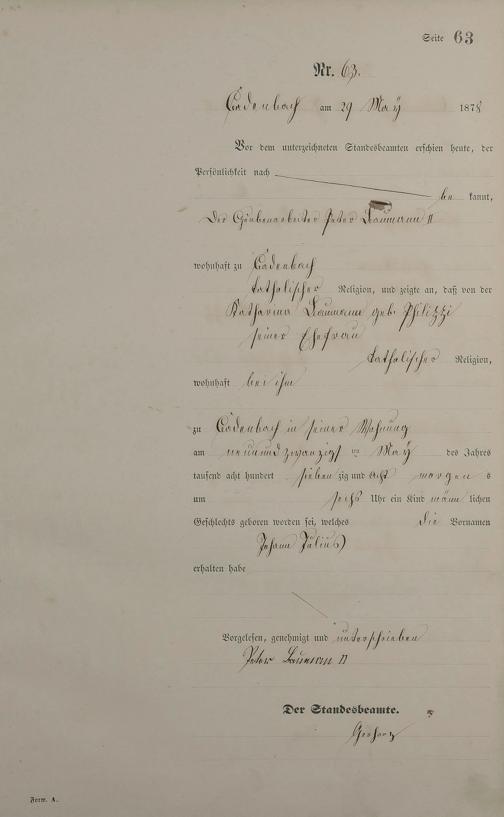 Seite 63
Nr. 63.
Cadenbach am 29 May 1878
Vor dem unterzeichneten Standesbeamten erschien heute, der
Persönlichkeit nach
be kannt,
Der Grubenarbeiter Peter Baumann II
wohnhaft zu Cadenbach
katholischer Religion, und zeigte an, daß von der
Katharina Baumann geb
seiner Ehefrau
katholischer Religion,
wohnhaft bei ihm
zu Cadenbach in seiner Wohnung
am neunundzwanzigst en May des Jahres
tausend acht hundert sieben zig und acht morgen s
um sechs Uhr ein Kind männ lichen
Geschlechts geboren worden sei, welches die Vornamen
Johann Julius
erhalten habe
Vorgelesen, genehmigt und unterschrieben
Peter Bauman II
Der Standesbeamte.
Form. A.